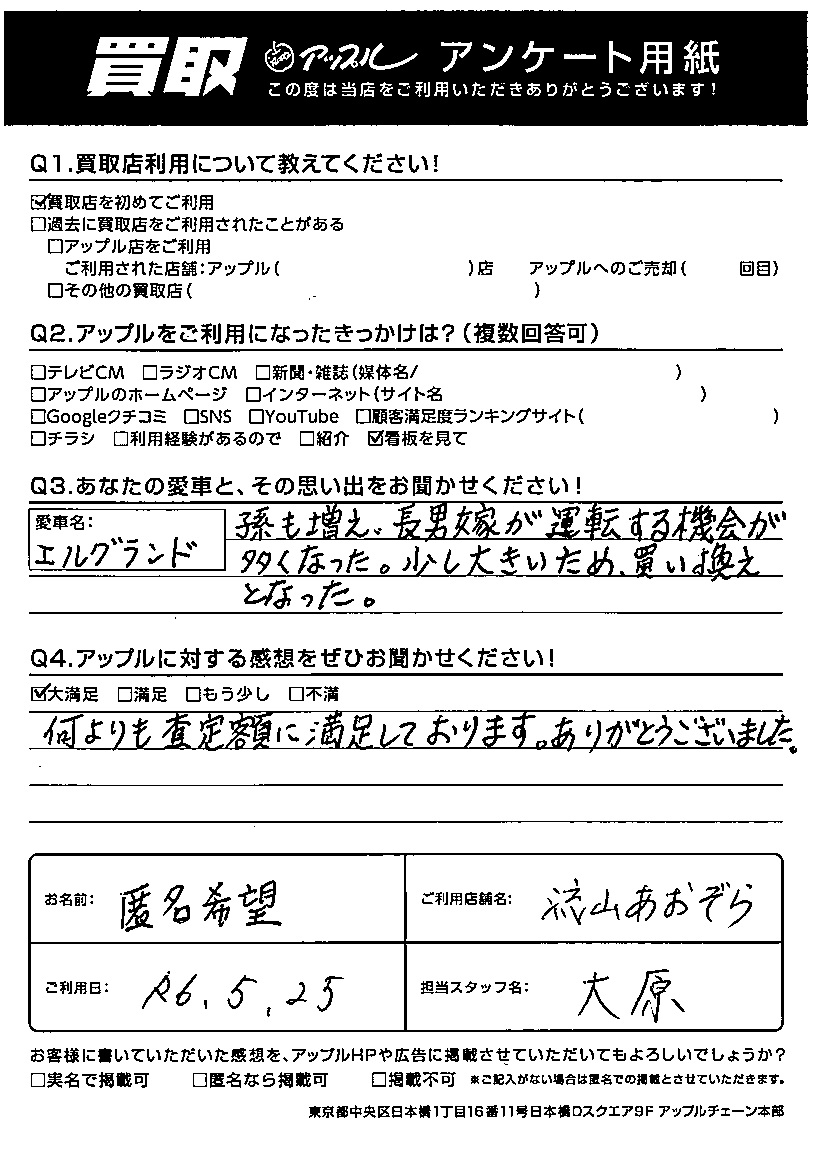 買取 アップル アンケート用紙
この度は当店をご利用いただきありがとうございます!
Q1.買取店利用について教えてください!
☑買取店を初めてご利用
□過去に買取店をご利用されたことがある
□アップル店をご利用
ご利用された店舗:アップル( )店 アップルへのご売却( 回目)
□その他の買取店( )
Q2.アップルをご利用になったきっかけは?(複数回答可)
□テレビCM □ラジオCM □新聞・雑誌(媒体名/ )
□アップルのホームページ □インターネット(サイト名 )
□Googleクチコミ □SNS □YouTube □顧客満足度ランキングサイト( )
□チラシ □利用経験があるので □紹介 ☑看板を見て
Q3.あなたの愛車と、その思い出をお聞かせください!
愛車名:
エルグランド
孫も増え、長男嫁が運転する機会が
多くなった。少し大きいため、買い換え
となった。
Q4.アップルに対する感想をぜひお聞かせください!
☑大満足 □満足 □もう少し □不満
何よりも査定額に満足しております。ありがとうございました。
お名前: 匿名希望 ご利用店舗名: 流山あおぞら
ご利用日: R6.5.25 担当スタッフ名: 大原
お客様に書いていただいた感想を、アップルHPや広告に掲載させていただいてもよろしいでしょうか?
□実名で掲載可 □匿名なら掲載可 □掲載不可 ※ご記入がない場合は匿名での掲載とさせていただきます。
東京都中央区日本橋1丁目16番11号日本橋Dスクエア9F アップルチェーン本部